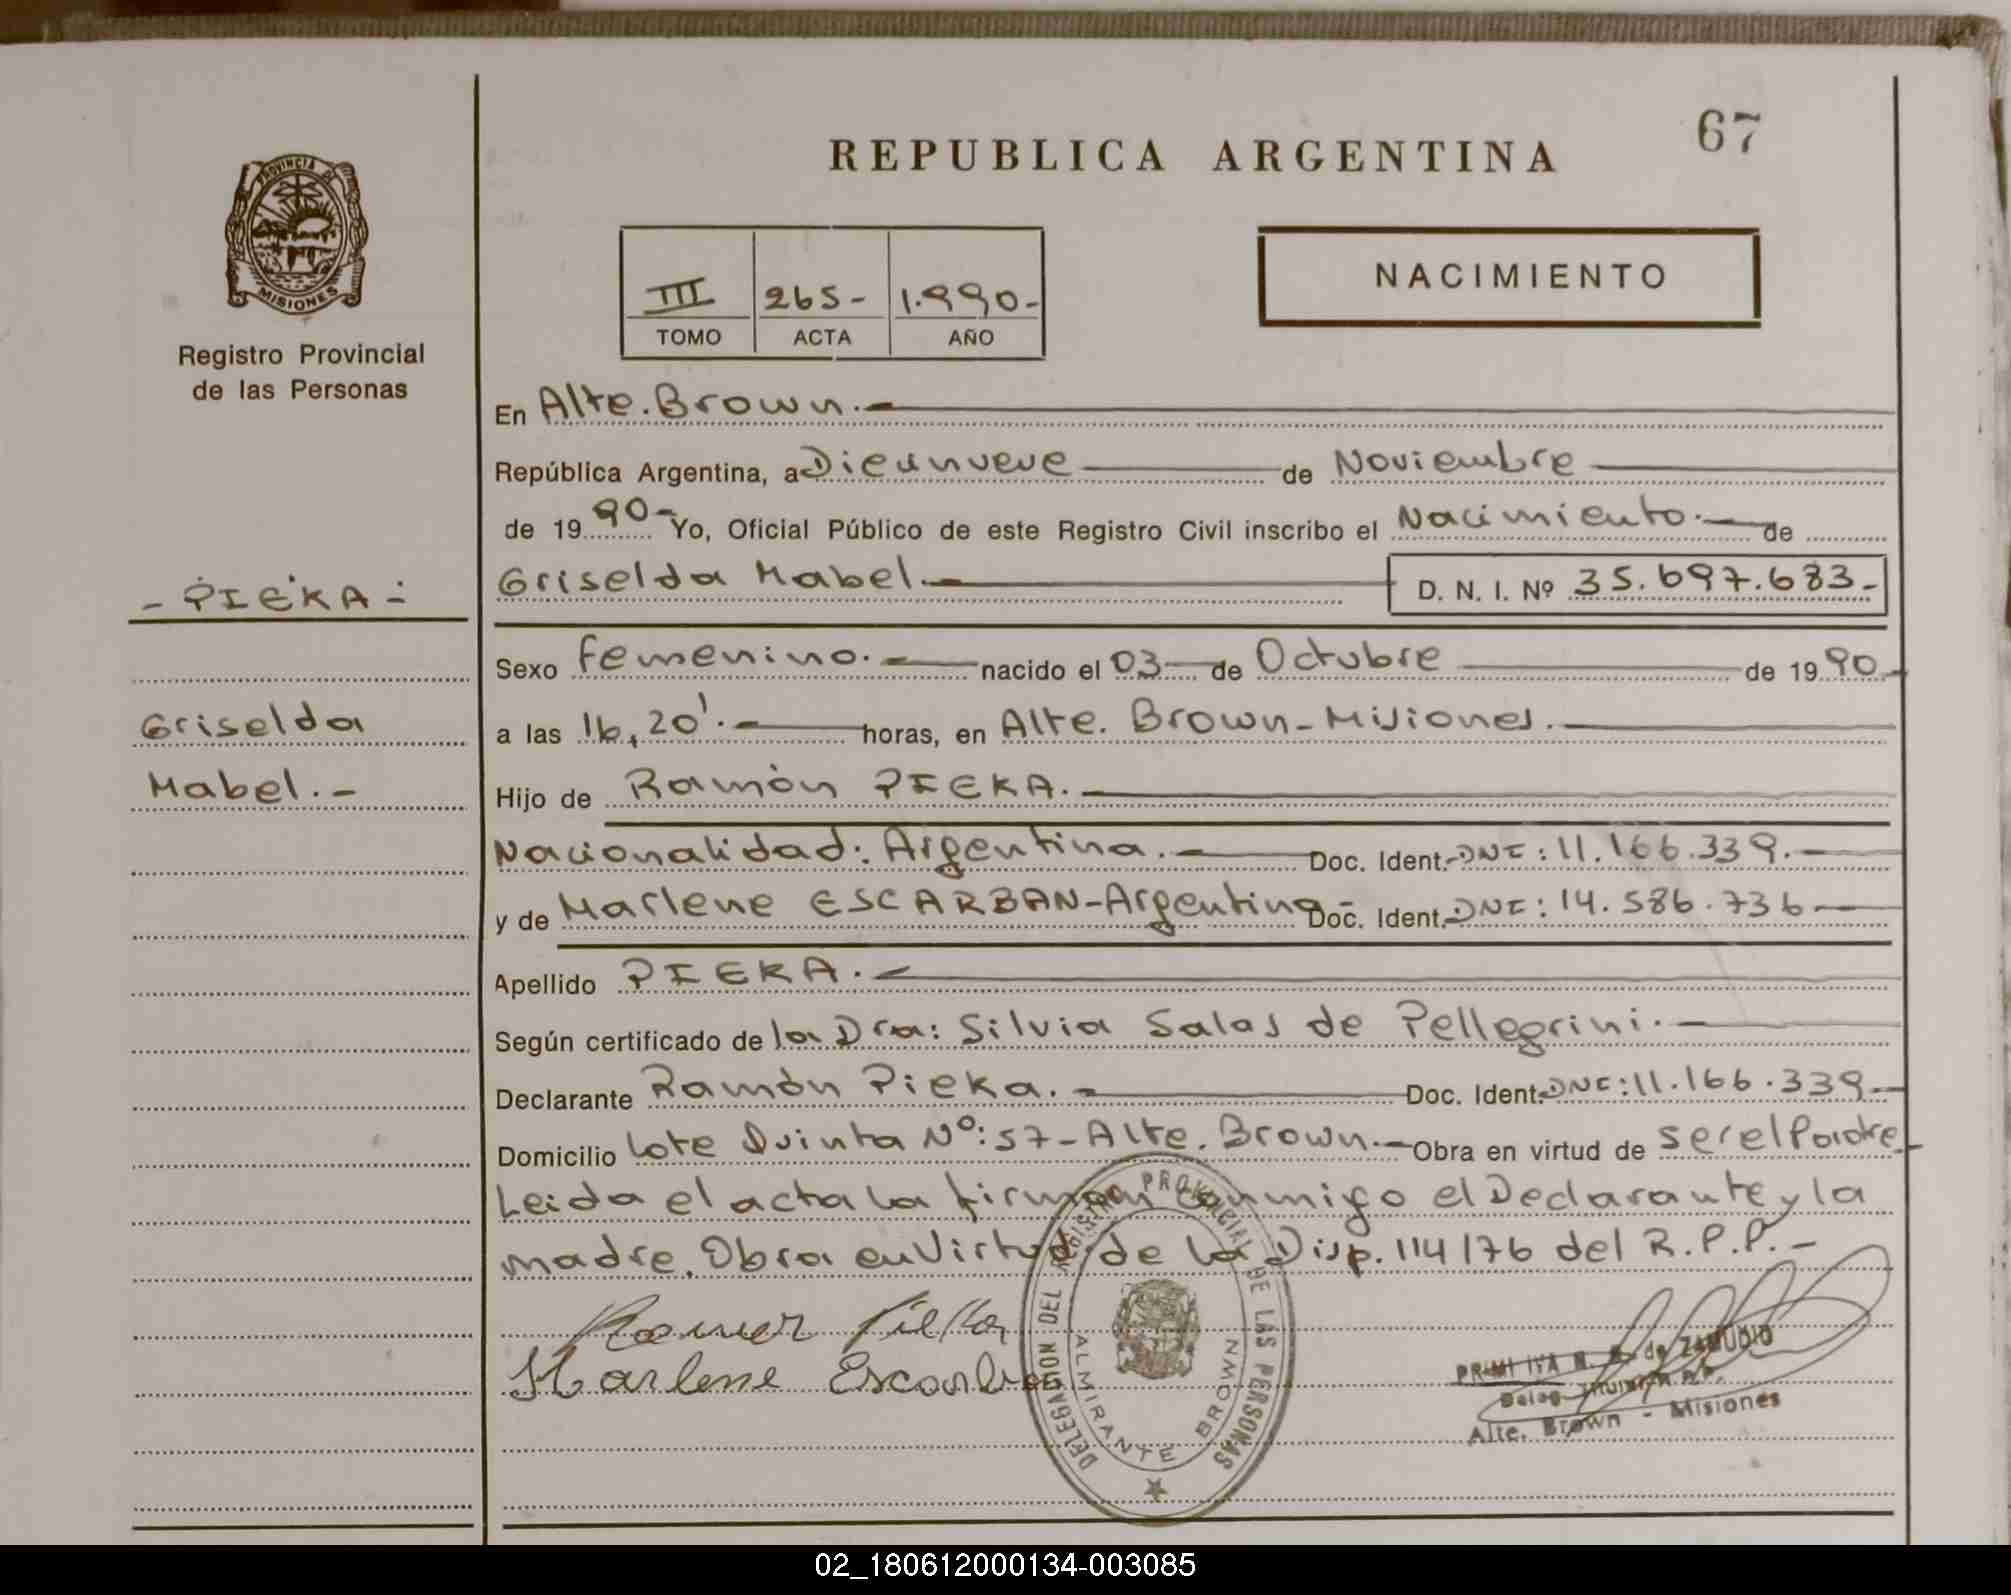 67
REPUBLICA ARGENTINA
PROVINCIA DE
MISIONES
Registro Provincial
de las Personas
III 265- 1.990-
TOMO ACTA AÑO
NACIMIENTO
En Alte. Brown.-
República Argentina, a Diecinueve de Noviembre
de 19 90- Yo, Oficial Público de este Registro Civil inscribo el Nacimiento.- de
- PIEKA -
Griselda Mabel.- D. N. I. Nº 35.697.683-
Sexo femenino.- nacido el 03 de Octubre de 19 90-
Griselda
a las 16,20'.- horas, en Alte. Brown-Misiones.
Mabel.-
Hijo de Ramón PIEKA.-
Nacionalidad: Argentina.- Doc. Ident. DNI: 11.166.339.-
y de Marlene ESCARBAN-Argentina- Doc. Ident. DNI: 14.586.736-
Apellido PIEKA.-
Según certificado de la Dra: Silvia Salas de Pellegrini.-
Declarante Ramón Pieka.- Doc. Ident. DNI: 11.166.339-
Domicilio Lote Quinta Nº: 57-Alte. Brown.- Obra en virtud de ser el Padre-
Leida el acta la firman conmigo el Declarante y la
madre. Obra en Virtud de la Disp. 114/76 del R.P.P.-
Ramon Pieka
Marlene Escarban
DELEGACION DEL REGISTRO PROVINCIAL DE LAS PERSONAS
ALMIRANTE BROWN
de ZAMUDIO
Alte. Brown - Misiones
02_180612000134-003085